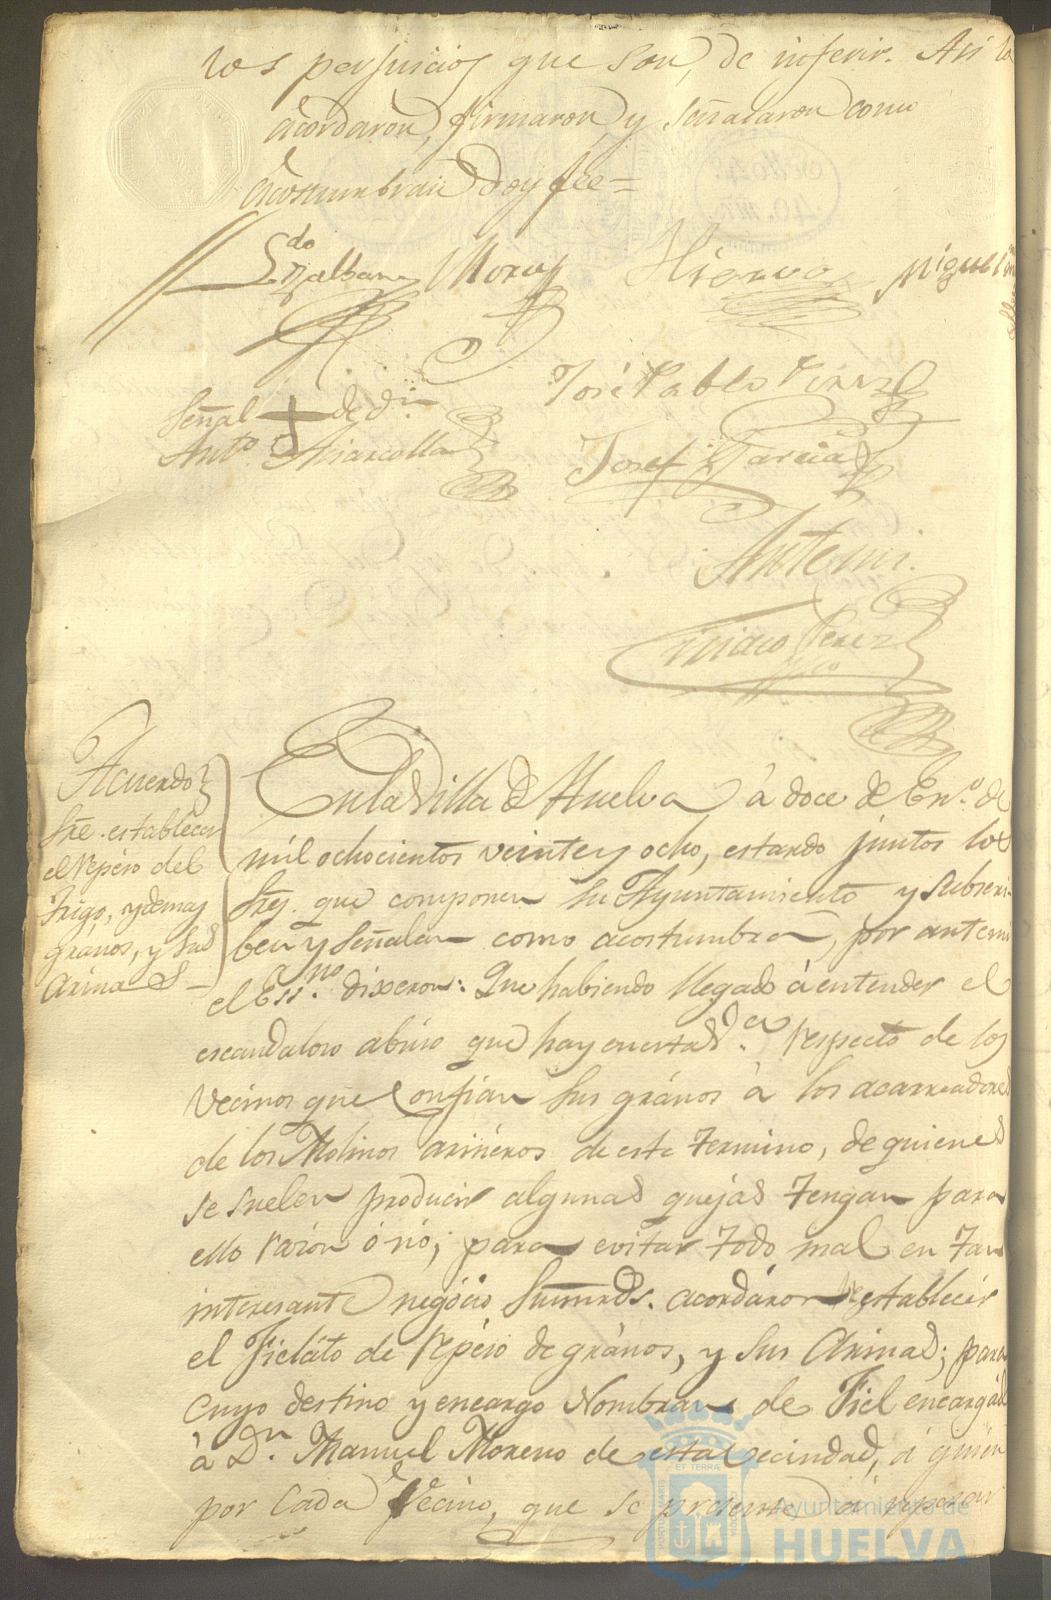 los perjuicios que son de inferir. Asi lo
acordaron, firmaron y señalaron como
acostumbran doy fee=
Ldo Moras Hierro Miguel
José Pablo Perez
Señal + de dn
Anto Josef Garcia
Antemi.
Perez
Acuerdo
Sre. establecer
el repeso del
trigo, y demas
granos, y sus
Arinas
En la Villa de Huelva á doce de En.o de
mil ochocientos veinte y ocho, estando juntos los
Sres. que componen su Ayuntamiento y subscri-
ben y señalan como acostumbran, por antemi
el Essno. dixeron: Que habiendo llegado á entender el
escandaloso abuso que hay en esta respecto de los
Vecinos que confian sus granos á los acarreadores
de los Molinos arineros de este termino, de quienes
se suelen producir algunas quejas tengan para
ello razon ó nó; para evitar todo mal en tan
interesante negócio Sus mrds. acordáron establecér
el Fieláto de repéso de grános, y sus Arinas; para
cuyo destino y encargo Nombran de Fiel encargado
à Dn. Manuel Moreno de esta Vecindad, á quién
por Cada Vecino, que se presente á repesar
Ayuntamiento de
HUELVA